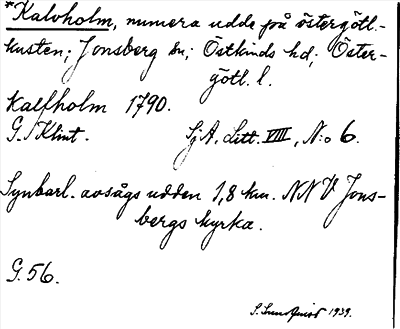 *Kalvholm, numera udde på östergötl.-
kusten; Jonsberg sn; Östkinds hd; Öster-
götl. l.
Kalfholm 1790.
G. Klint. SjA. Litt. VIII, N:o 6.
Synbarl. avsågs udden 1,8 km. NNV Jons-
bergs kyrka.
G. 56.
S. Sundqvist 1939.